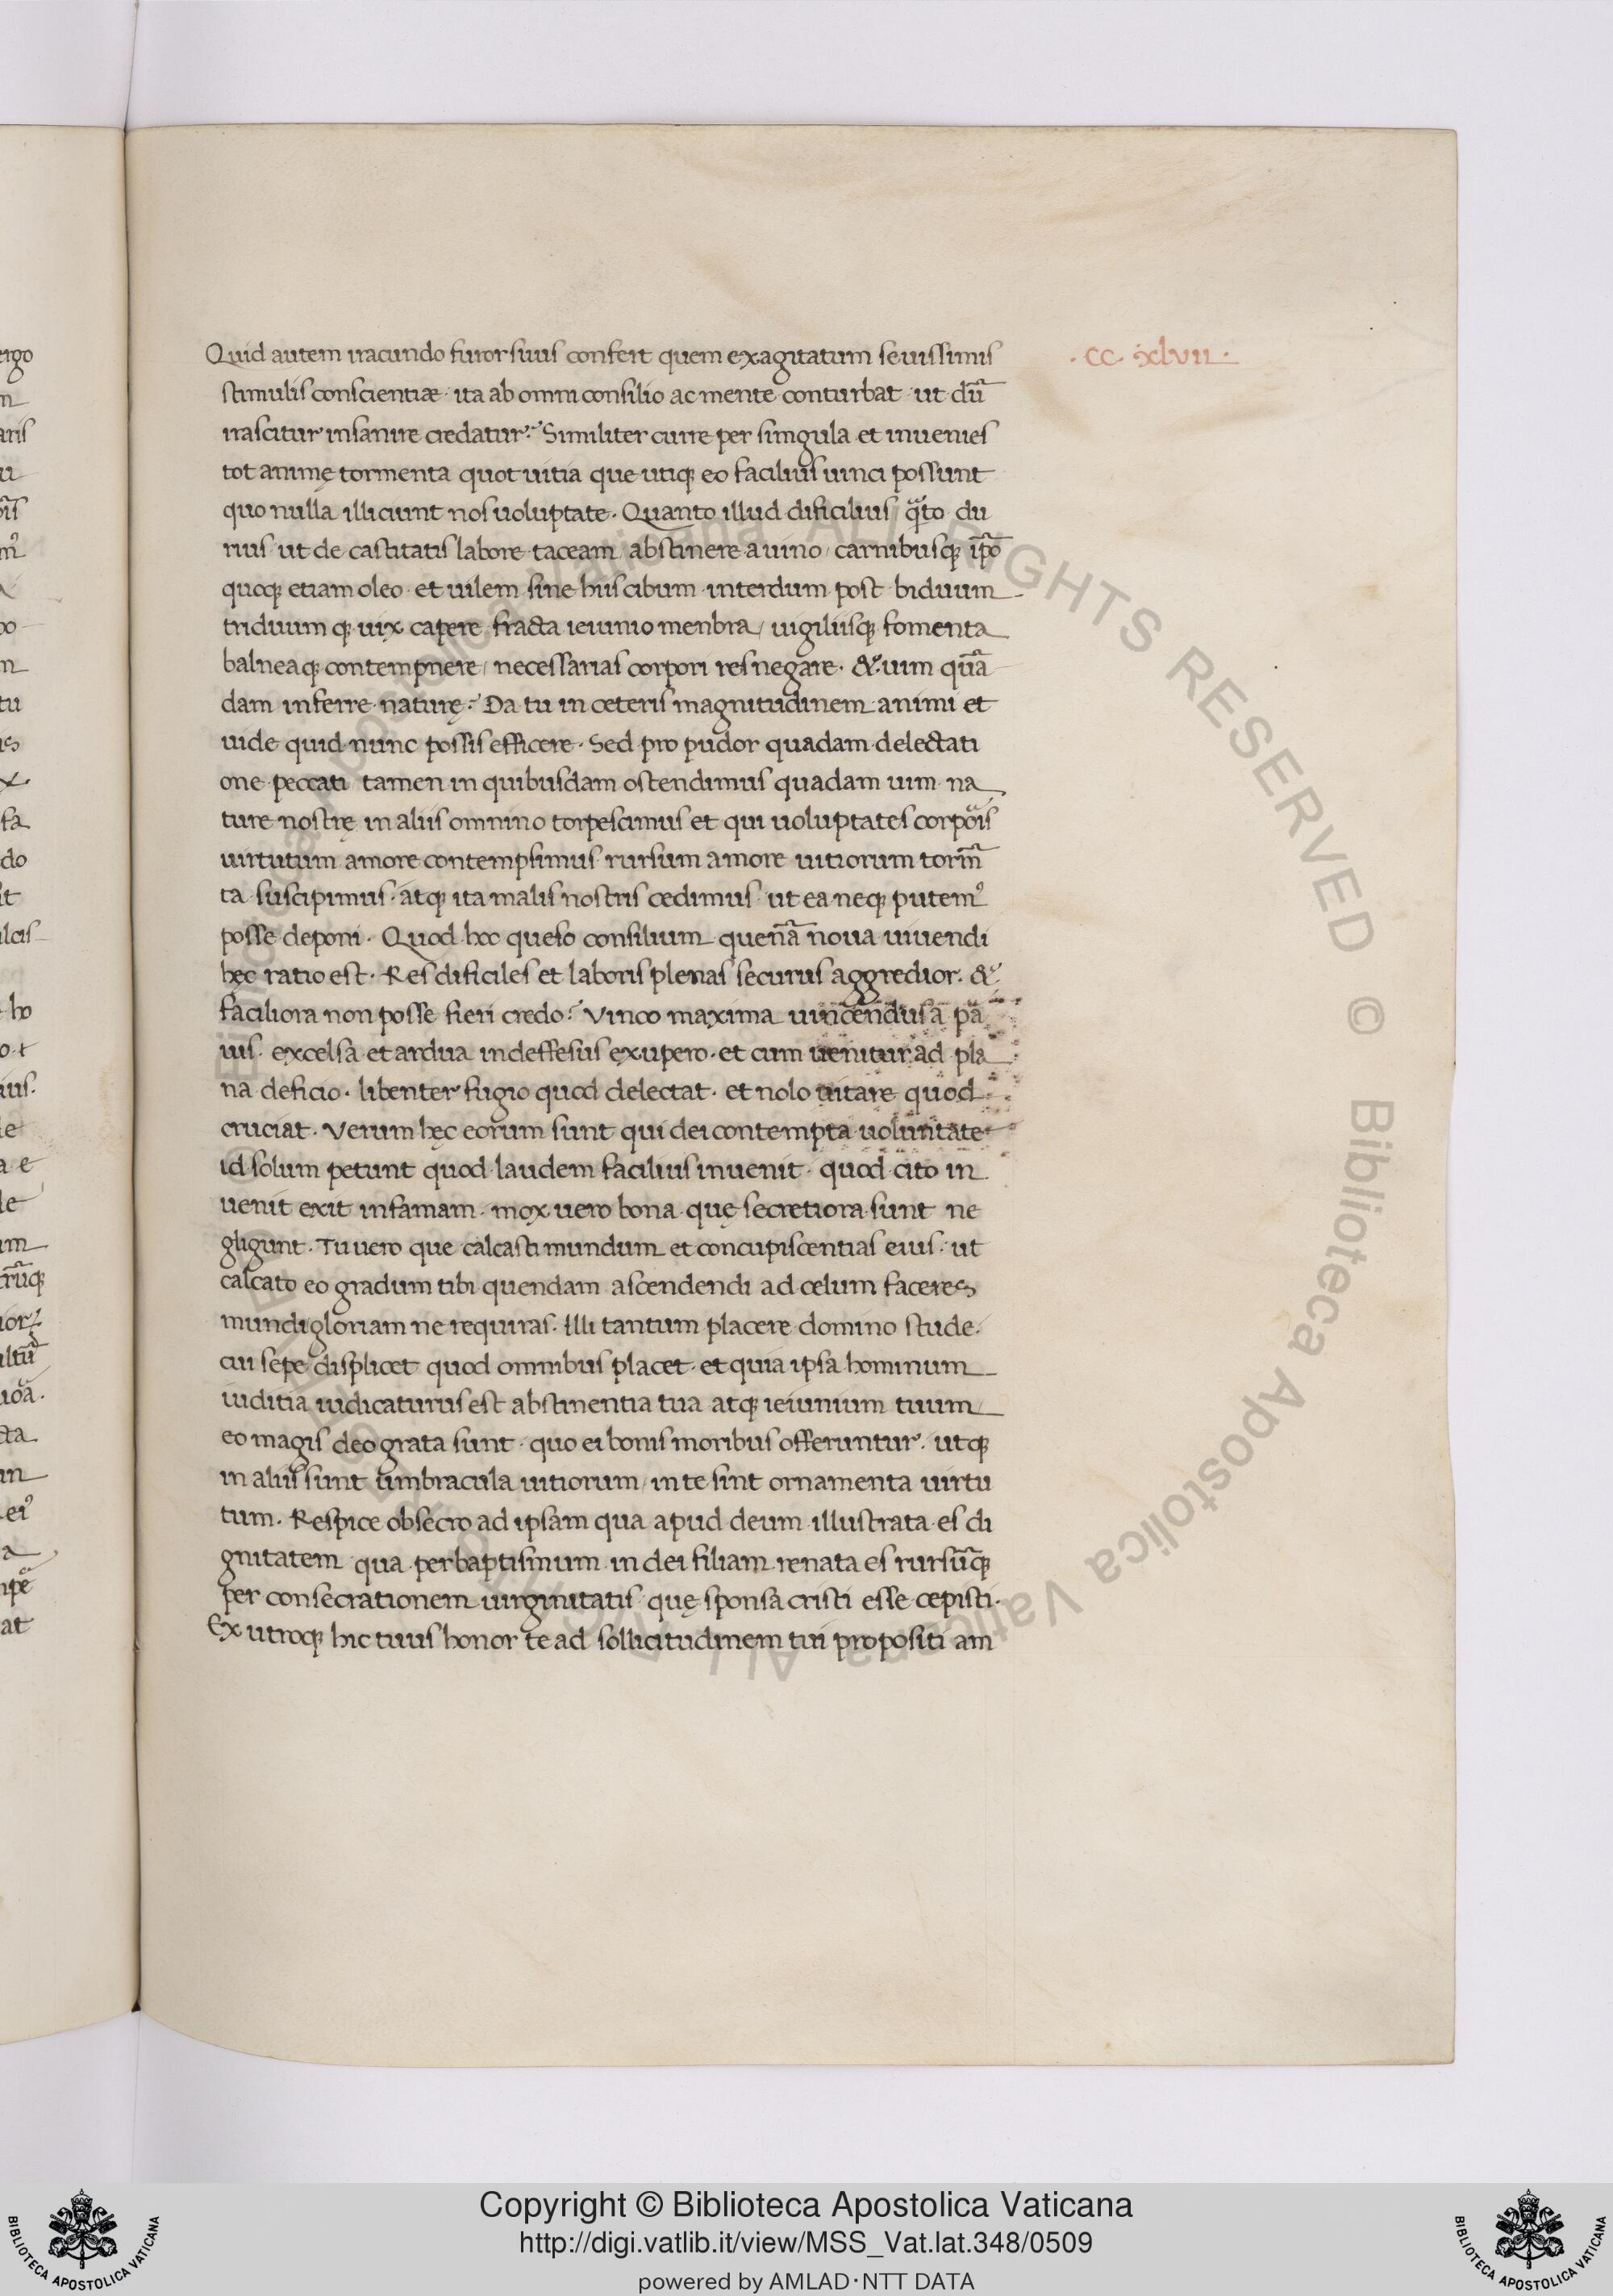 ergo
· CC · xlvii ·
Quid autem iracundo furor suus confert quem exagitatum seuissimis
stimulis conscientiæ · ita ab omni consilio ac mente conturbat · ut dũ
irascitur insanire credatur? Similiter curre per singula et inuenies
tot animę tormenta quot uitia que utiqꝫ eo facilius uinci possunt
quo nulla illiciunt nos uoluptate. Quanto illud dificilius q̃to du
rius ut de castitatis labore taceam abstinere a uino / carnibusqꝫ ip̃o
quoqꝫ etiam oleo · et uilem sine hiis cibum interdum post biduum
triduum qꝫ uix capere fracta ieiunio menbra / uigiliisqꝫ fomenta
balneaqꝫ contempnere / necessarias corpori res negare · & uim quã
dam inferre naturę? Da tu in ceteris magnitudinem animi et
uide quid nunc possis efficere · Sed pro pudor quadam delectati
one peccati tamen in quibusdam ostendimus quadam uim na
ture nostrę in aliis omnino torpescimus et qui uoluptates corpõis
uirtutum amore contempsimus rursum amore uitiorum tormẽ
ta suscipimus · atqꝫ ita malis nostris cedimus ut ea neqꝫ putemꝰ
posse deponi · Quod hoc queso consilium quenã noua uiuendi
hęc ratio est · Res dificiles et laboris plenas securus aggredior · &
faciliora non posse fieri credo? Vinco maxima uincendus a pa
uis · excelsa et ardua indeffesus exupero · et cum uenitur ad pla
na deficio · libenter fugio quod delectat · et nolo uitare quod
cruciat · Verum hęc eorum sunt qui dei contempta uoluntate
id solum petunt quod laudem facilius inuenit · quod cito in
uenit exit infamam · mox uero bona quę secretiora sunt ne
gligunt · Tu uero que calcasti mundum et concupiscentias eius · ut
calcato eo gradum tibi quendam ascendendi ad cęlum faceres
mundi gloriam ne requiras · Illi tantum placere domino stude ·
cui sepe displicet quod omnibus placet · et quia ipsa hominum
iuditia iudicaturus est abstinentia tua atqꝫ ieiunium tuum
eo magis deo grata sunt · quo ei bonis moribus offeruntur · utqꝫ
in aliis sunt umbracula uitiorum / in te sint ornamenta uirtu
tum · Respice obsecro ad ipsam qua apud deum illustrata es di
gnitatem qua per baptismum in dei filiam renata es rursũqꝫ
per consecrationem uirginitatis quę sponsa cristi esse cepisti ·
Ex utroqꝫ hic tuus honor te ad sollicitudinem tui propositi am
© Biblioteca Apostolica Vaticana ALL RIGHTS RESERVED
Copyright © Biblioteca Apostolica Vaticana
http://digi.vatlib.it/view/MSS_Vat.lat.348/0509
powered by AMLAD·NTT DATA
BIBLIOTECA APOSTOLICA VATICANA
BIBLIOTECA APOSTOLICA VATICANA